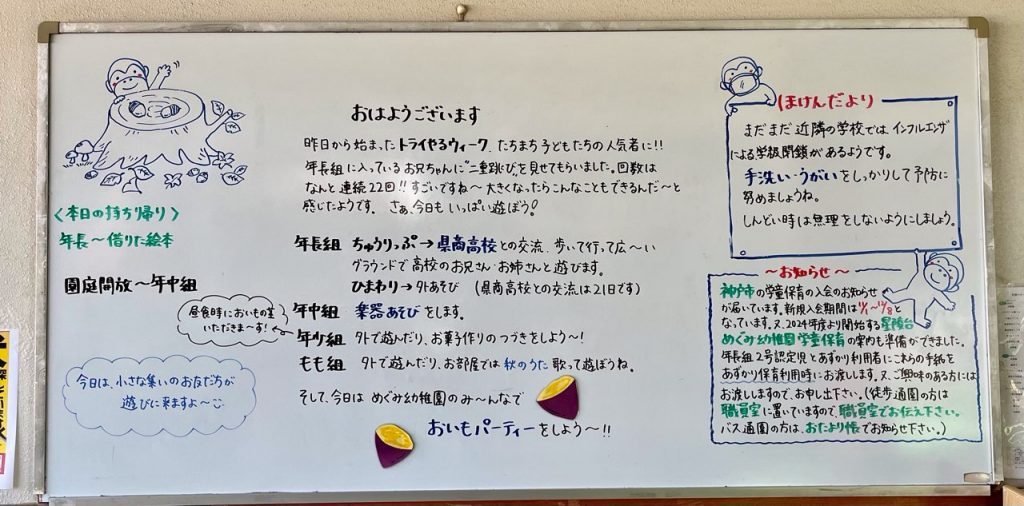 おはようございます
昨日から始まったトライやるウィーク、たちまち子どもたちの人気者に!!
年長組に入っているお兄ちゃんに"二重跳び"を見せてもらいました。回数は
なんと連続22回!!すごいですね〜大きくなったらこんなこともできるんだ〜と
感じたようです。さぁ、今日もいっぱい遊ぼう!
〈本日の持ち帰り〉
年長〜借りた絵本
園庭開放〜年中組
昼食時においもの茎
いただきま〜す!
今日は、小さな集いのお友だちが
遊びに来ますよ〜
年長組 ちゅうりっぷ→県商高校との交流、歩いて行って広〜い
グラウンドで高校のお兄さん・お姉さんと遊びます。
ひまわり→外あそび (県商高校との交流は21日です)
年中組 楽器あそびをします。
年少組 外で遊んだり、お菓子作りのつづきをしよう〜!
もも組 外で遊んだり、お部屋では秋のうた歌って遊ぼうね。
そして、今日はめぐみ幼稚園のみ〜んなで
おいもパーティーをしよう〜!!
ほけんだより
まだまだ近隣の学校では、インフルエンザ
による学級閉鎖があるようです。
手洗い・うがいをしっかりして予防に
努めましょうね。
しんどい時は無理をしないようにしましょう。
〜お知らせ〜
神戸市の学童保育の入会のお知らせ
が届いています。新規入会期間は
となっています。又、2024年度より開始する星陵台
めぐみ幼稚園学童保育の案内も準備ができました。
年長組2号認定児とあずかり利用者にこれらの手紙を
あずかり保育利用時にお渡します。又、ご興味のある方には
お渡ししますので、お申し出下さい。(徒歩通園の方は
職員室に置いていますので、職員室でお伝え下さい。
バス通園の方は、おたより帳でお知らせ下さい。)